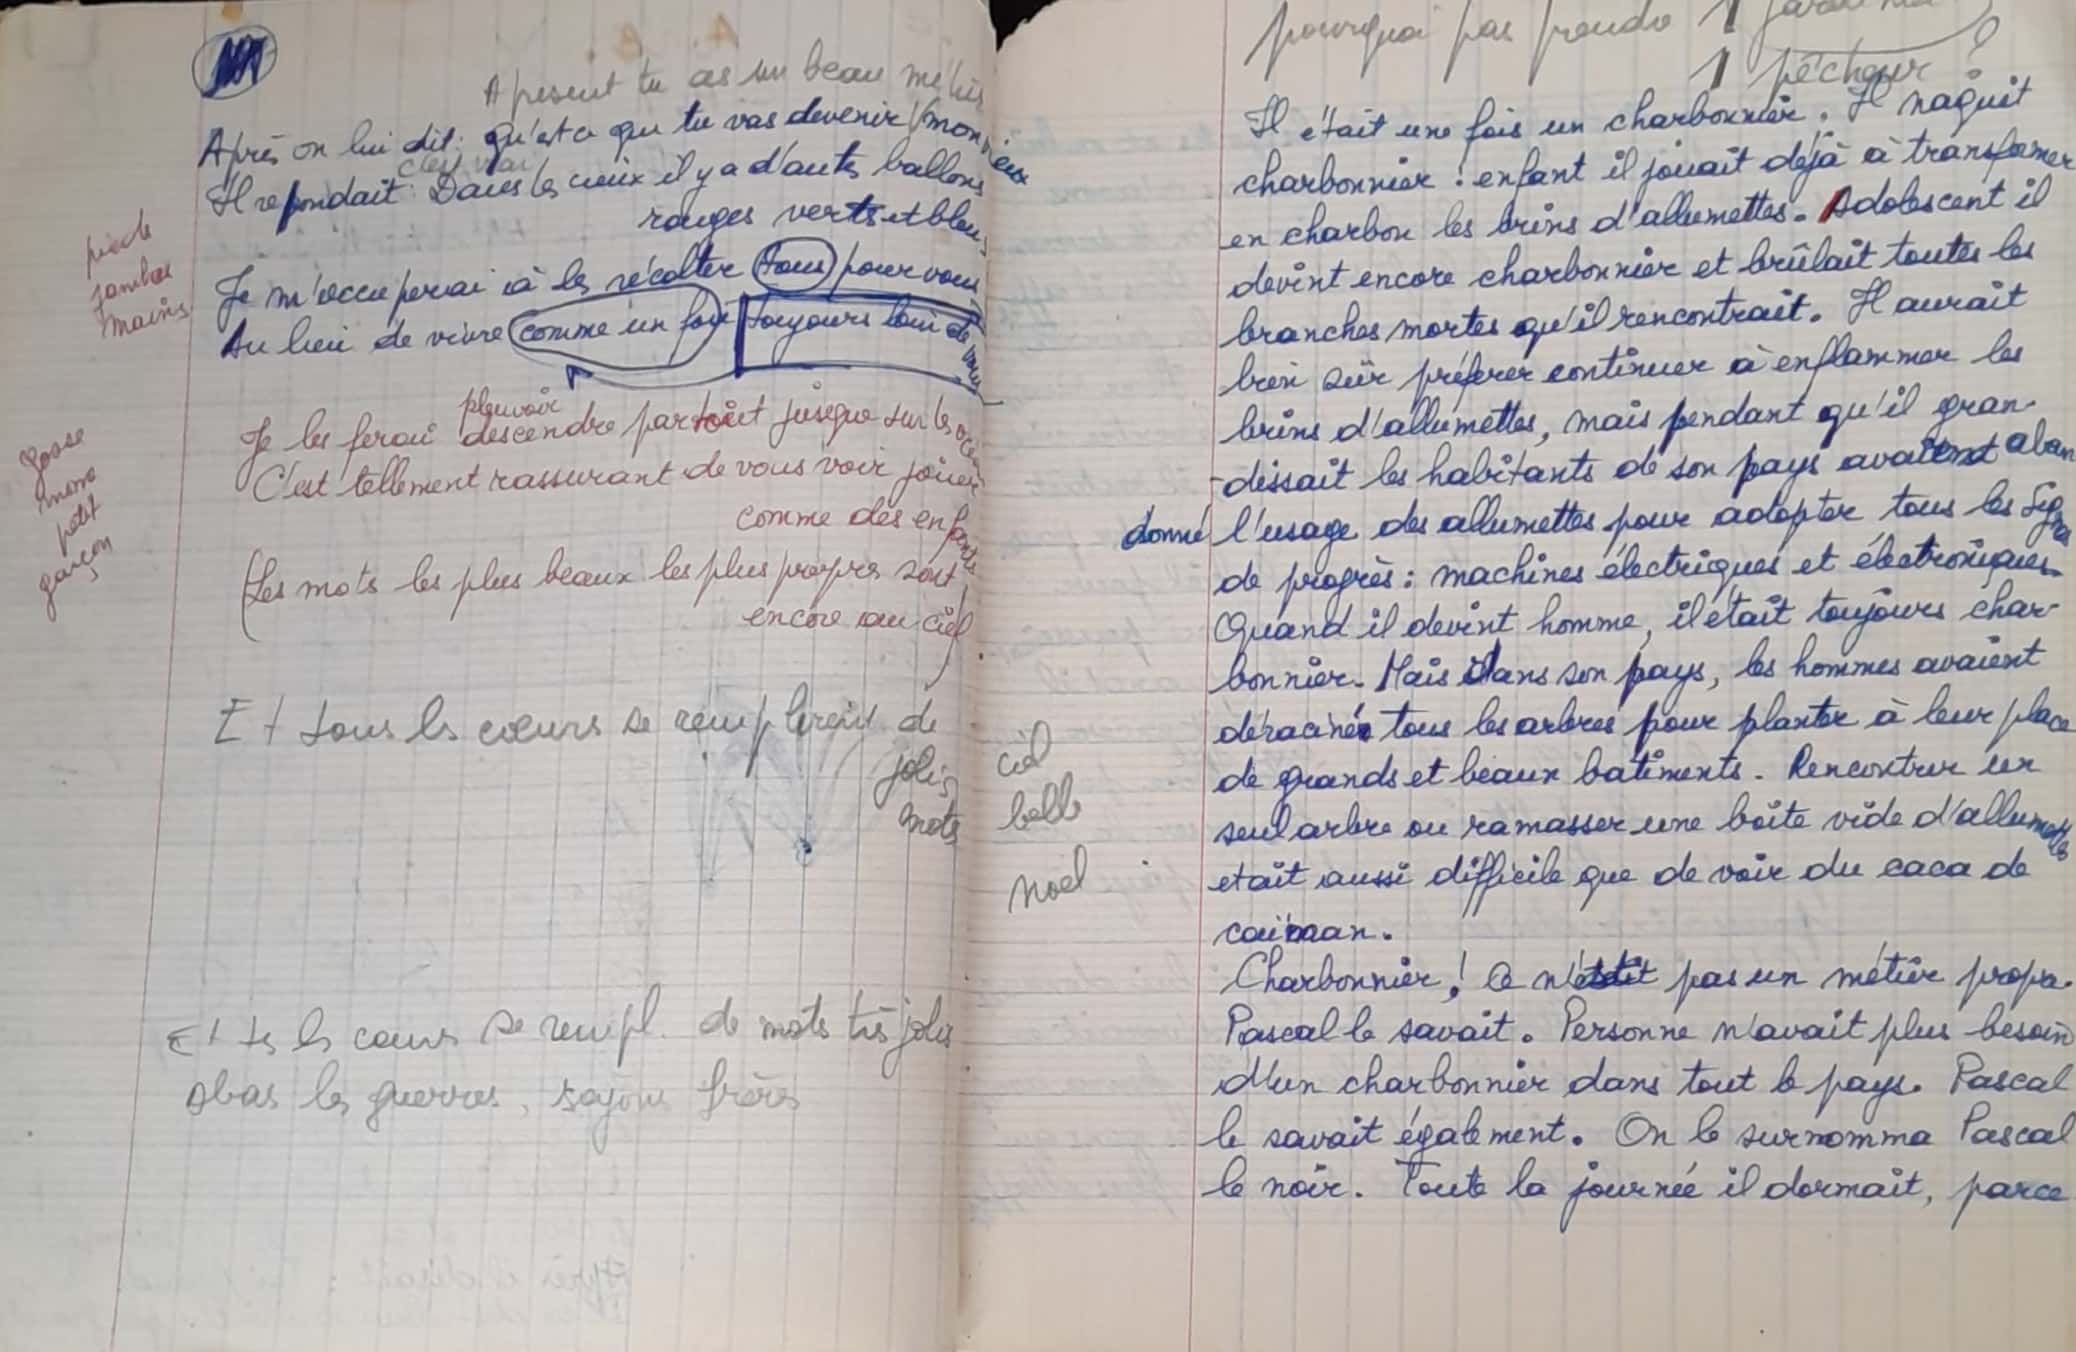 A present tu as un beau métier
Après on lui dit: qu'est ce que tu vas devenir (mon vieux
c'est vrai
Il repondait: Dans les cieux il y a d'autres ballons
rouges verts et bleus
Je m'occuperai à les récolter tous pour vous
Au lieu de vivre comme un fou toujours loin de vous
pieds
jambes
mains
pleuvoir
Je les ferai descendre partout jusque sur les
C'est tellement rassurant de vous voir jouer
comme des enfants
(Les mots les plus beaux les plus propres sont
encore au ciel
gosse
mome
petit
garçon
Et tous les coeurs se remplirent de
jolis
mots
Et ts les coeurs se rempl. de mots très jolis
abas les guerres, soyons frères
ciel
belle
Noel
pourquoi pas prendre 1
1 pêcheur ?
Il était une fois un charbonnier. Il naquit
charbonnier: enfant il jouait déjà à transformer
en charbon les brins d'allumettes. Adolescent il
devint encore charbonnier et brûlait toutes les
branches mortes qu'il rencontrait. Il aurait
bien sûr préferer continuer à enflammer les
brins d'allumettes, mais pendant qu'il gran-
-dissait les habitants de son pays avaient aban
donné l'usage des allumettes pour adopter tous les signes
de progrès: machines électriques et électroniques.
Quand il devint homme, il était toujours char-
bonnier. Mais dans son pays, les hommes avaient
déraciné tous les arbres pour planter à leur place
de grands et beaux batiments. Rencontrer un
seul arbre ou ramasser une boîte vide d'allumettes
etait aussi difficile que de voir du caca de
caïman.
Charbonnier! Ce n'était pas un métier propre.
Pascal le savait. Personne n'avait plus besoin
d'un charbonnier dans tout le pays. Pascal
le savait également. On le surnomma Pascal
le noir. Toute la journée il dormait, parce